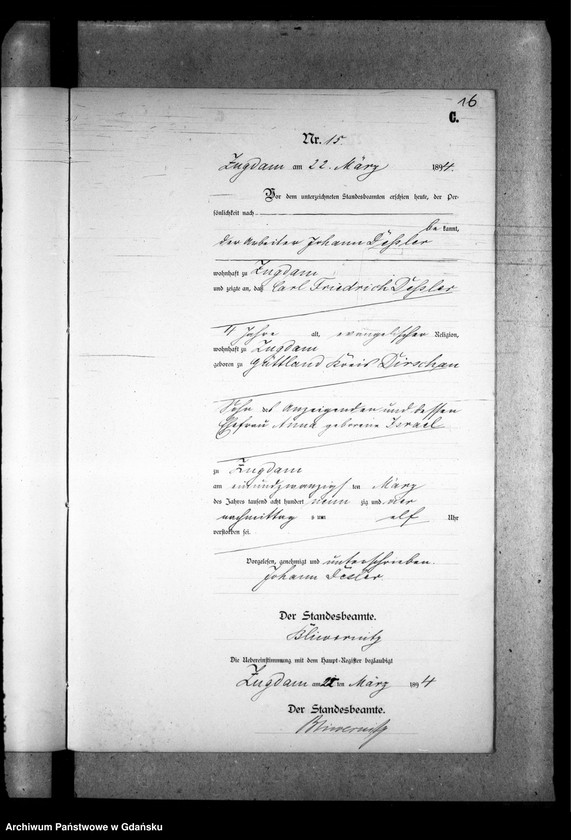 16
C.
Nr. 15
Zugdam am 22. März 1894.
Vor dem unterzeichneten Standesbeamten erschien heute, der Per-
sönlichkeit nach
be kannt,
der Arbeiter Johann Deßler
wohnhaft zu Zugdam
und zeigte an, daß Carl Friedrich Deßler
4 Jahre alt, evangelischer Religion,
wohnhaft zu Zugdam
geboren zu Güttland Kreis Dirschau
Sohn Anzeigenden und dessen
Ehefrau Anna geborene Israel
zu Zugdam
am einundzwanzigsten März
des Jahres tausend acht hundert neun zig und vier
nachmittag um elf Uhr
verstorben sei.
Vorgelesen, genehmigt und unterschrieben.
Johann
Der Standesbeamte.
Die Uebereinstimmung mit dem Haupt-Register beglaubigt
Zugdam am 22 ten März 1894
Der Standesbeamte.
Archiwum Państwowe w Gdańsku